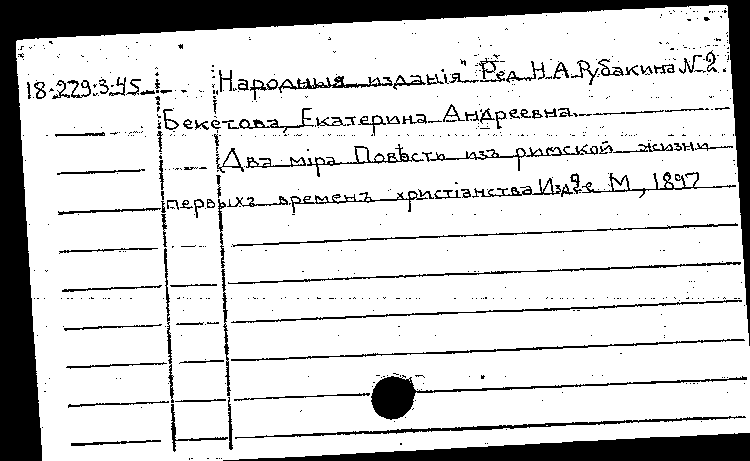 18.229.3.45 Народныя изданія" Ред. Н.А.Рубакина №2.
Бекетова, Екатерина Андреевна.
Два міра Повѣсть изъ римской жизни
первыхъ временъ христіанства Изд 2-е М., 1897